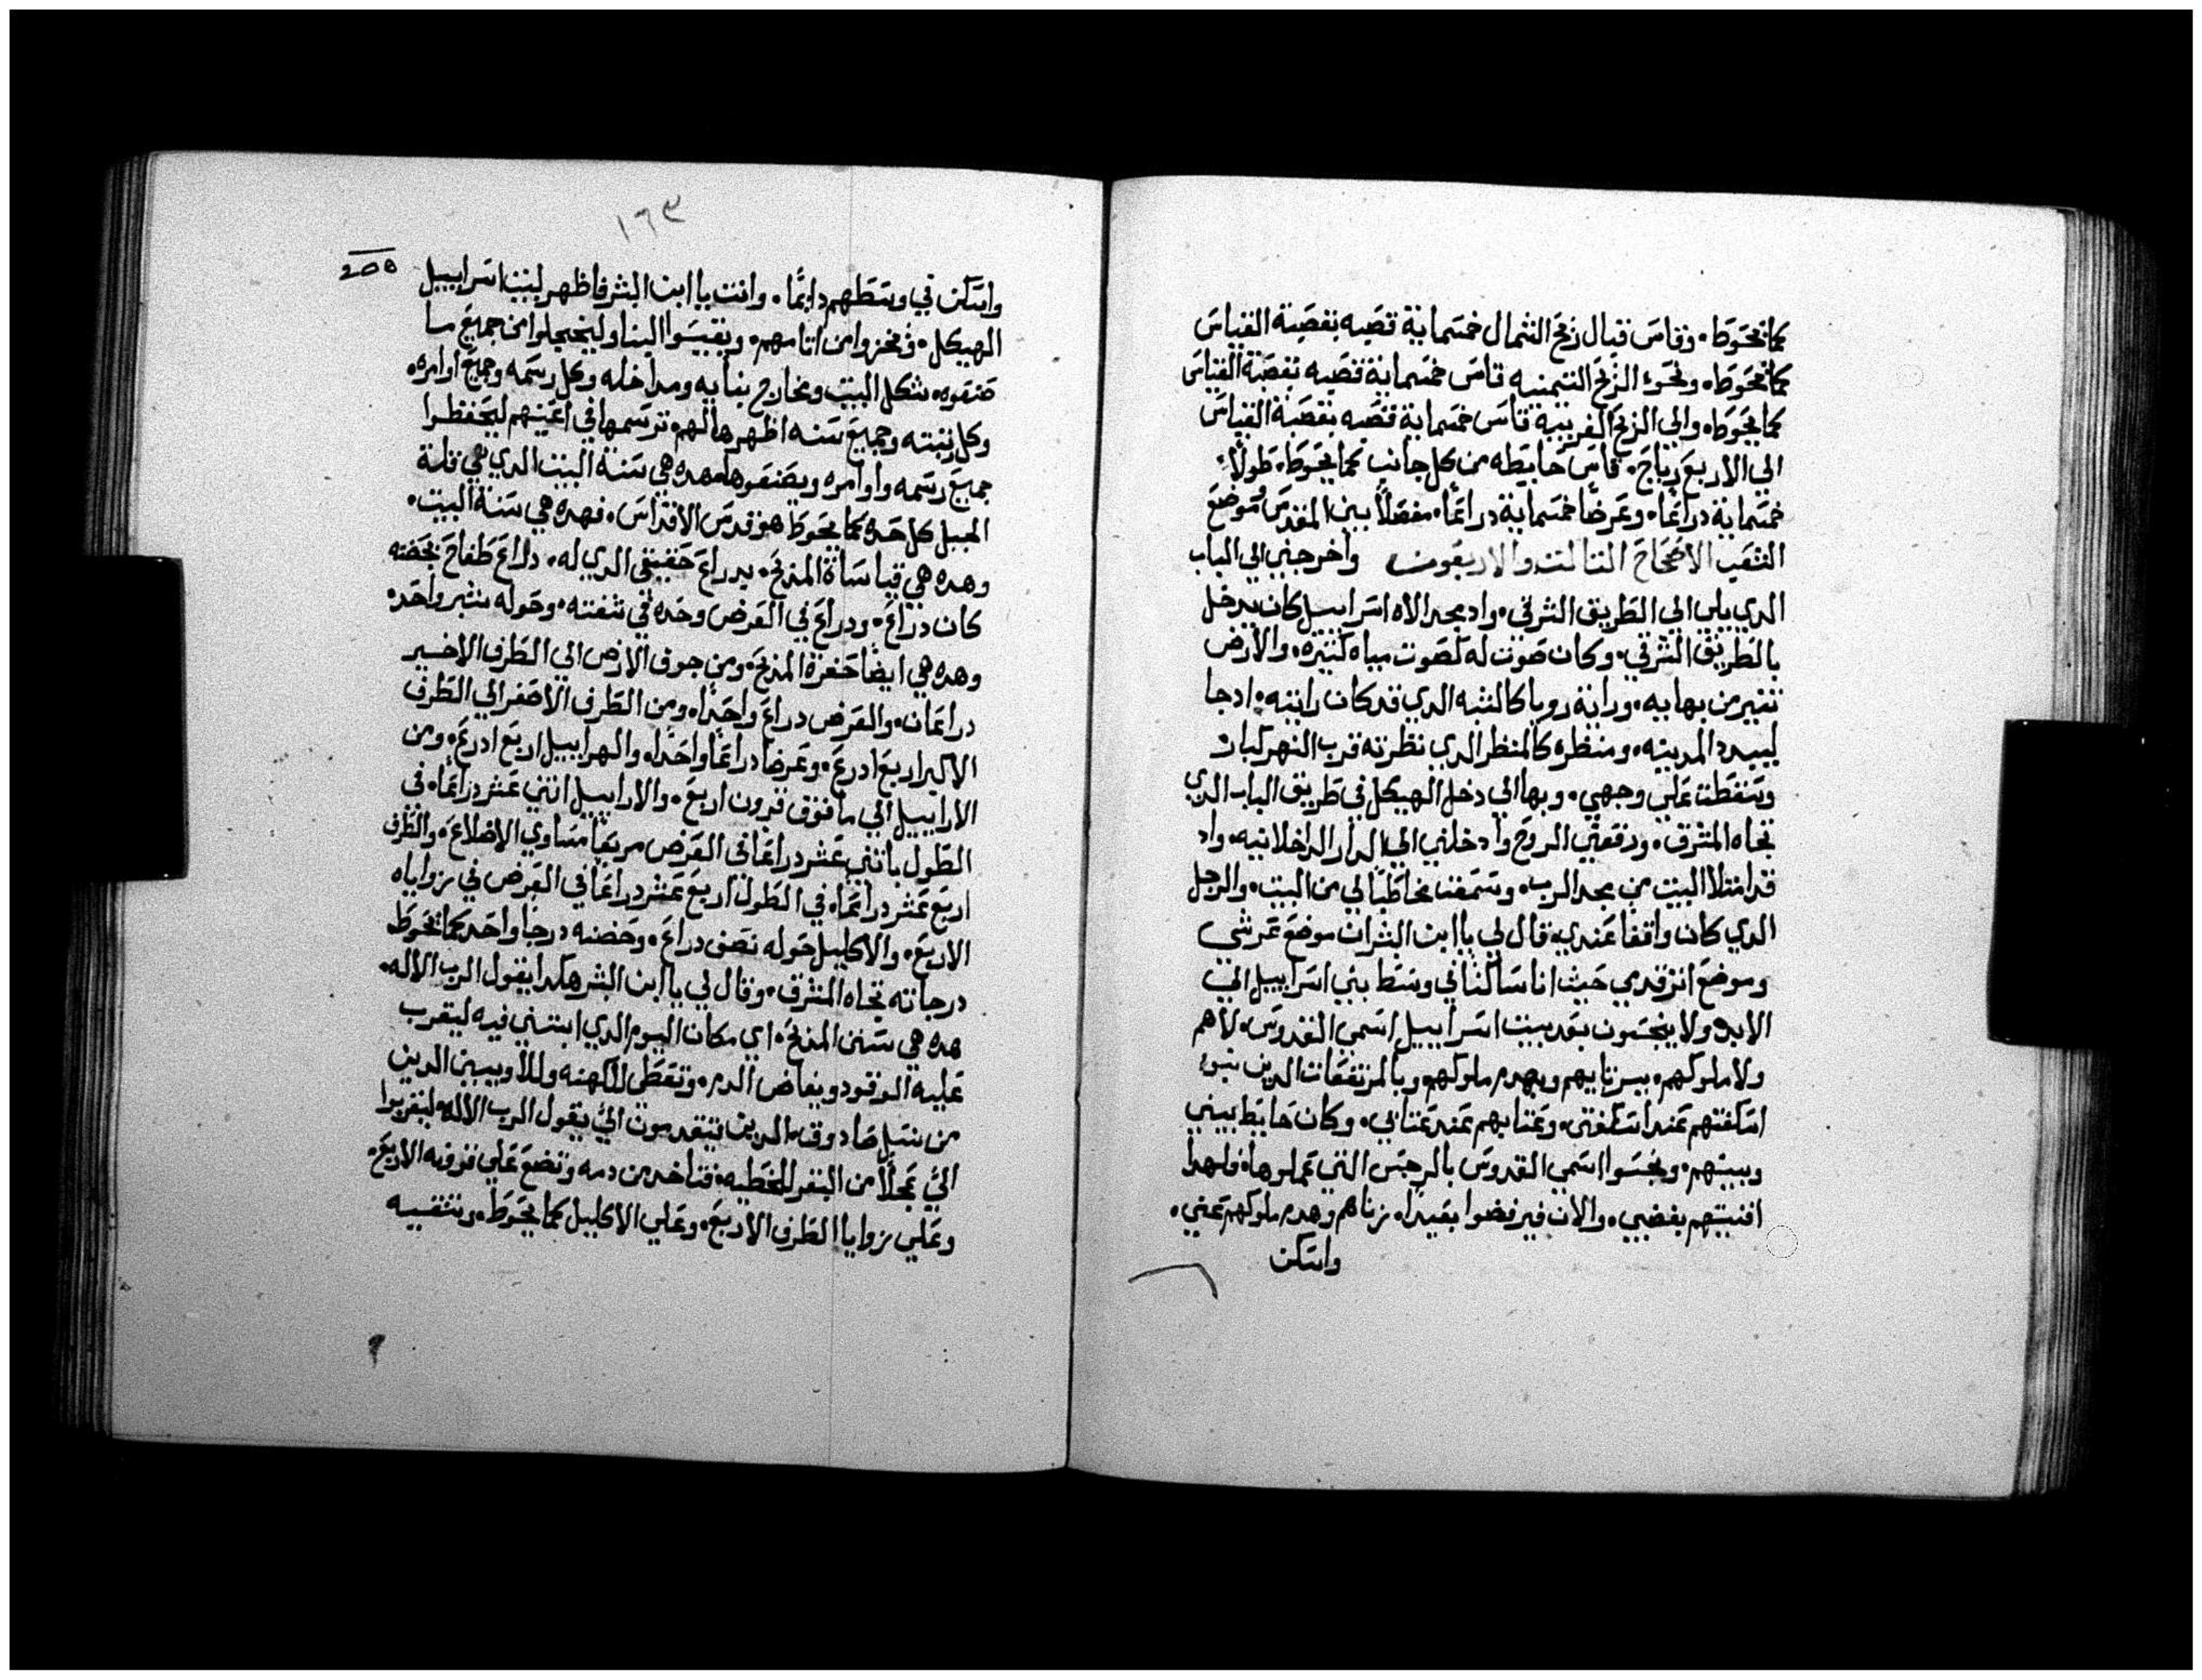 كما يحوط. وقاس قبال ريح الشمال خمسماية قصبه بقصبة القياس
كما يحوط. ونحو الريح التيمنيه قاس خمسماية قصبه بقصبة القياس
كما يحوط. والي الريح الغربية قاس خمسماية قصبه بقصبة القياس
الي الاربع رياح. قاس حايطه من كل جانب كما يحوط. طولًا
خمسماية دراعًا. وعرضًا خمسماية دراعًا. مفصلًا بين المقدس وموضع
الشعب الاصحاح التالت والاربعون واخرجني الي الباب
الدي يلي الي الطريق الشرقي. واد بمجد الاه اسراييل كان يدخل
بالطريق الشرقي. وكان صوت له لصوت مياه كثيره. والارض
تنير من بهايه. ورايت رويا كالشبه الدي قد كان رايته. ادجا
ليبيد المدينه. ومنظره كالمنظر الدي نظرته قرب النهر كبار
وسقطت علي وجهي. وبها الي دخل الهيكل في طريق الباب الدي
تجاه المشرق. ورفعني الروح وادخلني الي الدار الداخلانيه. واد
قد امتلا البيت من مجد الرب. وسمعت مخاطبًا لي من البيت. والرجل
الدي كان واقفا عندي. قال لي يا ابن البشر ان موضع عرشي
وموضع اتر قدمي حيث انا ساكنا في وسط بني اسراييل الي
الابد. ولا ينجسون بعد بيت اسراييل اسمي القدوس. لا هم
ولا ملوكهم. بزناييهم وبهدم ملوكهم وبالمرتفعات الدين بنوء
اسكفتهم عند اسكفتي. وعتابهم عند عتابي. وكان حايط بيني
وبينهم. ونجسوا اسمي القدوس بالرجس التي عملوها. ولهدا
افنيتهم بغضبي. والان فيرفضوا بعيدا. زناهم وهدم ملوكهم عني.
واسكن
١٦٣
واسكن في وسطهم دايمًا. وانت يا ابن البشر فاظهر لبيت اسراييل
الهيكل. وفخزوا من اتامهم. ويقيسوا البنا وليخجلوا من جميع ما
صنعوه. شكل البيت ومخارج بنايه ومداخله وكل رسمه وجميع اوامره.
وكل رتبته وجميع سننه اظهرها لهم. ترسمها في اعينهم ليحفظوا
جميع رسمه واوامره ويصنعوها. هده هي سنة البيت الدي هي في قلة
الجبل كل حده كما يحوط هو قدس الاقداس. فهده هي سنة البيت.
وهده هي قياساة المدبح. بدراع حقيقي الدي له. دراع طفاح بحضنه
كان دراع. ودراع في العرض وحده في شفته. وحوله شبر واحد.
وهده هي ايضًا حفرة المدبح. ومن جوف الارض الي الطرف الاخير
دراعان. والعرض دراع واحدًا. ومن الطرف الاصغر الي الطرف
الاكبر اربع ادرع. وعرضا دراعًا واحدًا. والهراييل اربع ادرع. ومن
الاراييل الي ما فوق قرون اربع. والاراييل اتني عشر دراعًا. في
الطول باتني عشر دراعًا في العرض مربعا متساوي الاضلاع. والطرف
اربع عشر دراعًا. في الطول اربع عشر دراعًا في العرض في زواياه
الاربع. والاكليل حوله نصف دراع. وحضنه درجًا واحد كما يحوط
درجاته تجاه المشرق. وقال لي يا ابن البشر هكدا يقول الرب الاله.
هده هي سنن المدبح. اي مكان اليوم الدي ابتني فيه ليقرب
عليه الوقود ويفاض الدم. وتعطي للكهنه وللاويين الدين
من نسل صادوق. الدين يتقدمون اليّ يقول الرب الاله ليقربوا
اليّ عجلًا من البقر للخطيه. فتاخد من دمه وتضع علي قرونه الاربع.
وعلي زوايا الطرف الاربع. وعلي الاكليل كما يحوط. وتنقيه